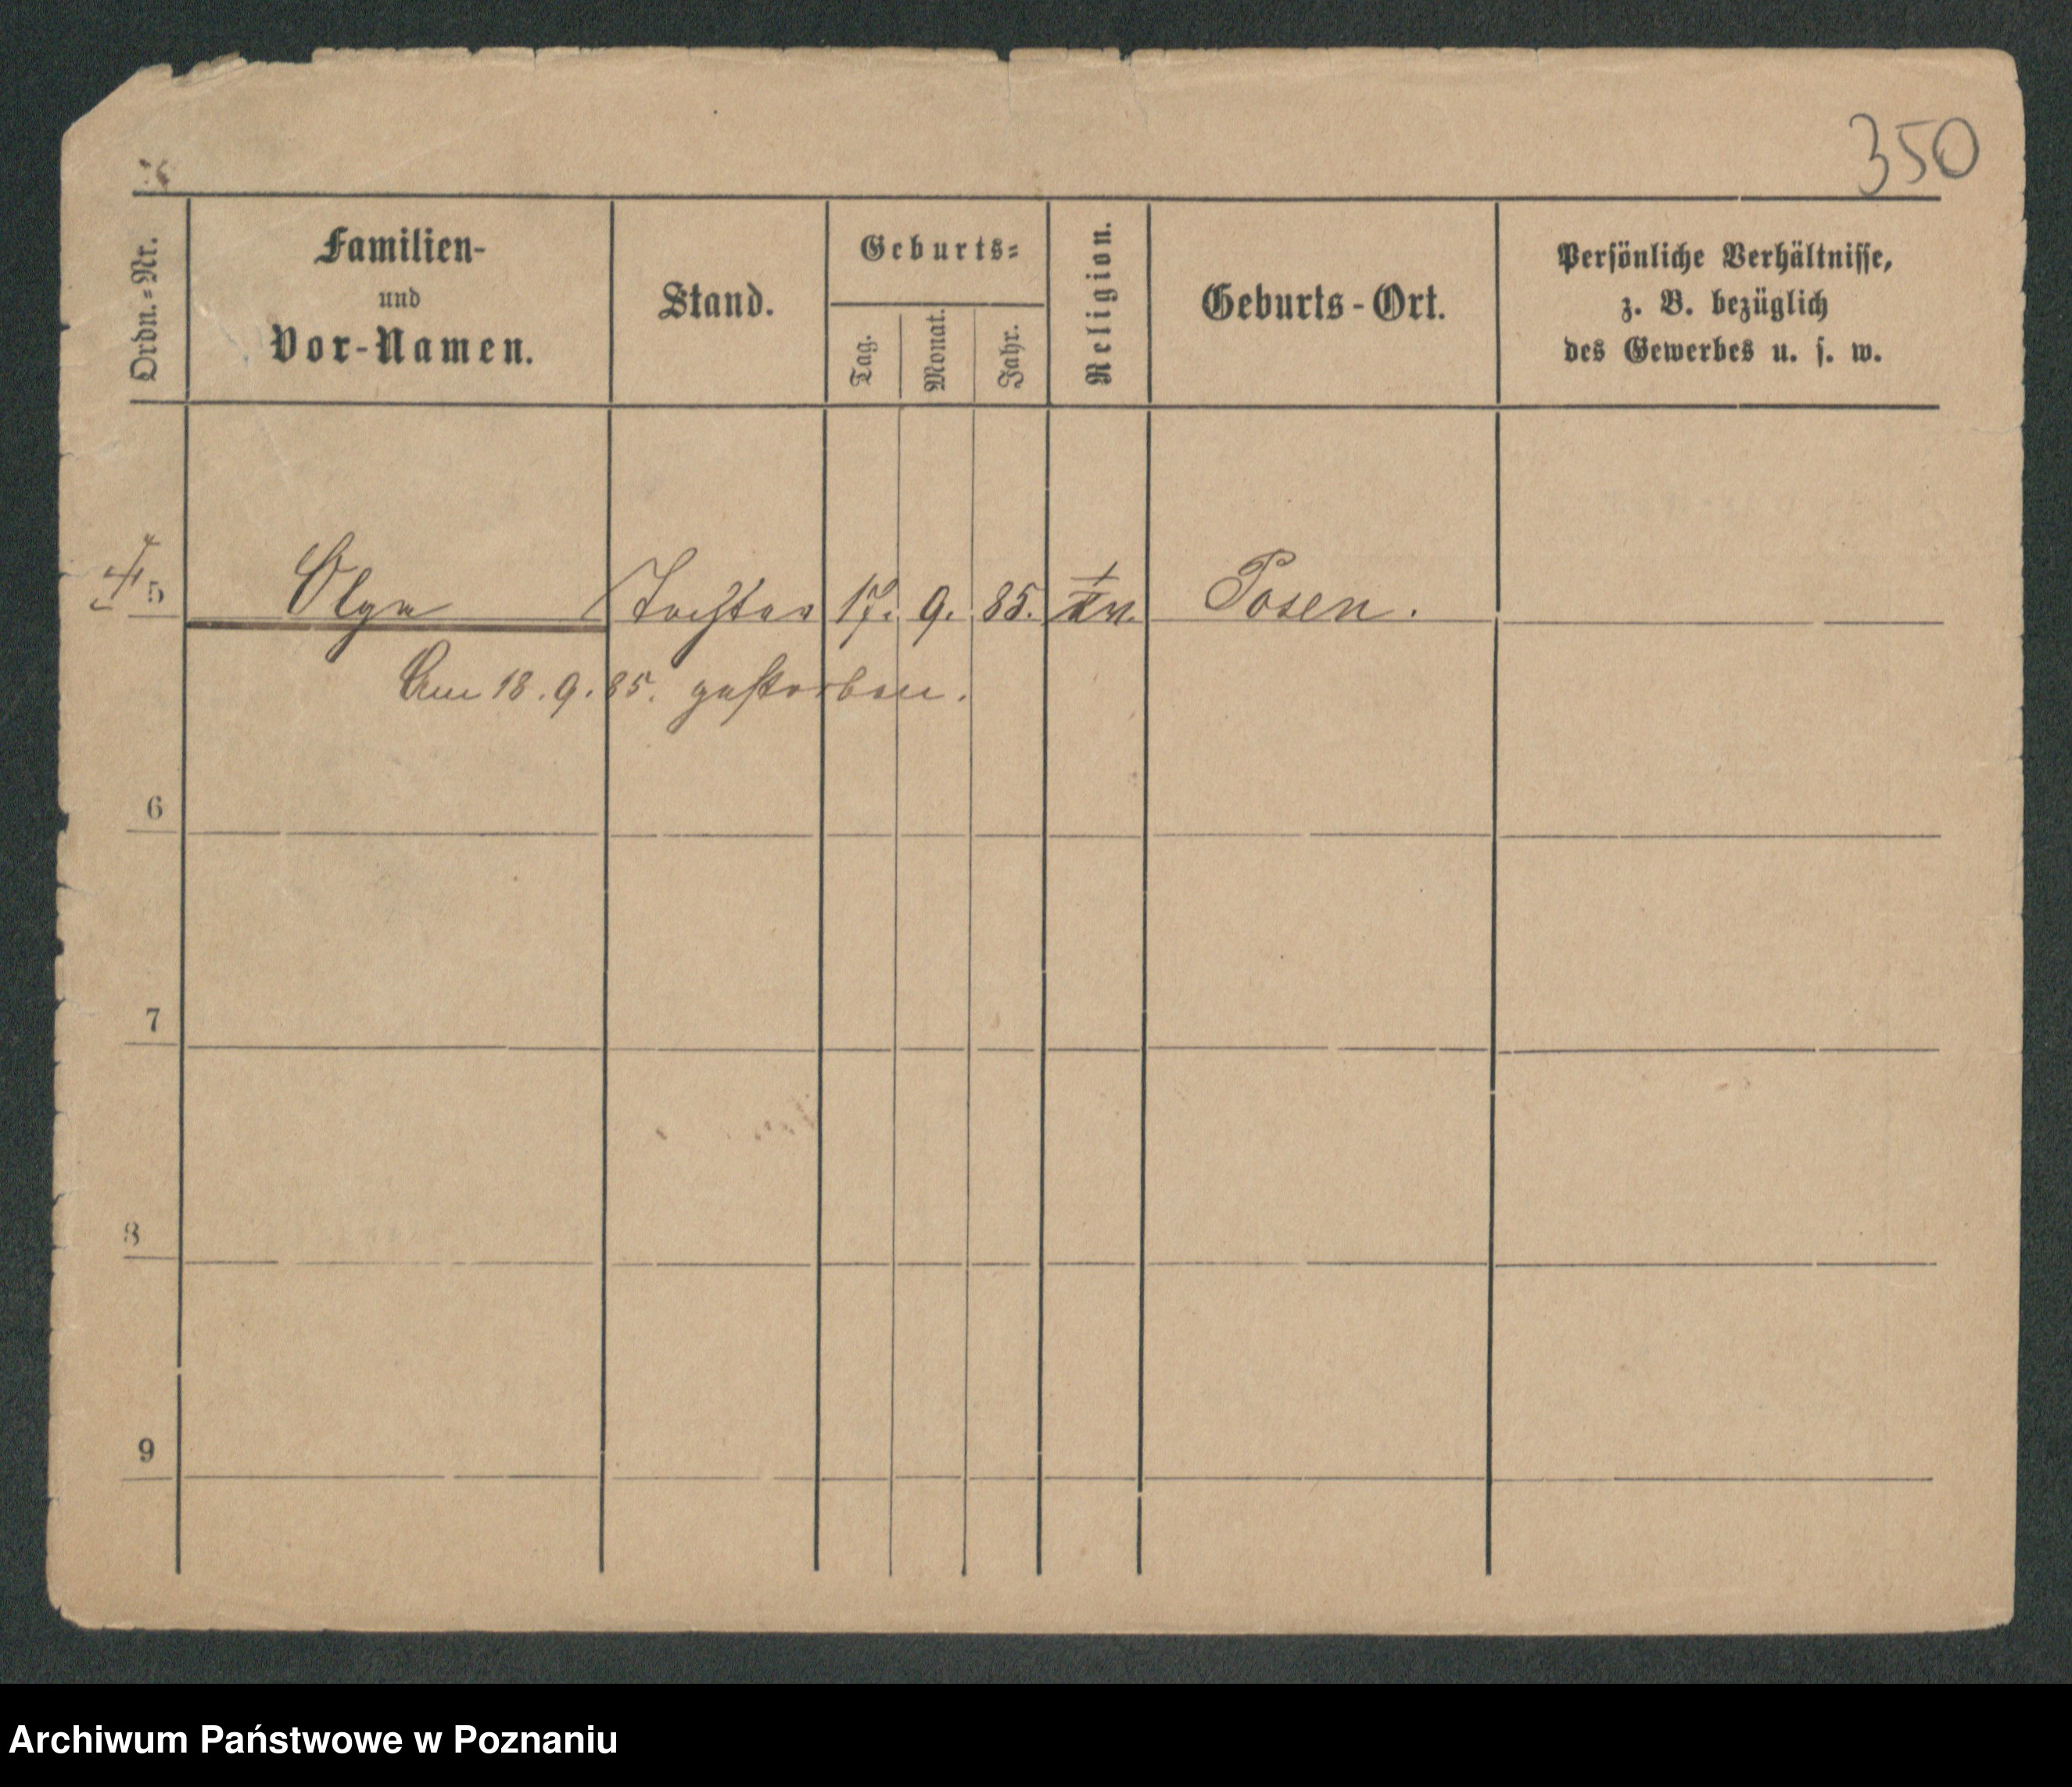 350
Ordn.-Nr.
Familien-
und
Vor-Namen.
Stand.
Geburts-
Tag.
Monat.
Jahr.
Religion.
Geburts-Ort.
Persönliche Verhältnisse,
z. B. bezüglich
des Gewerbes u. s. w.
5 Olga Tochter 17. 9. 85. Posen.
Am 18.9.85. gestorben.
6
7
8
9
Archiwum Państwowe w Poznaniu